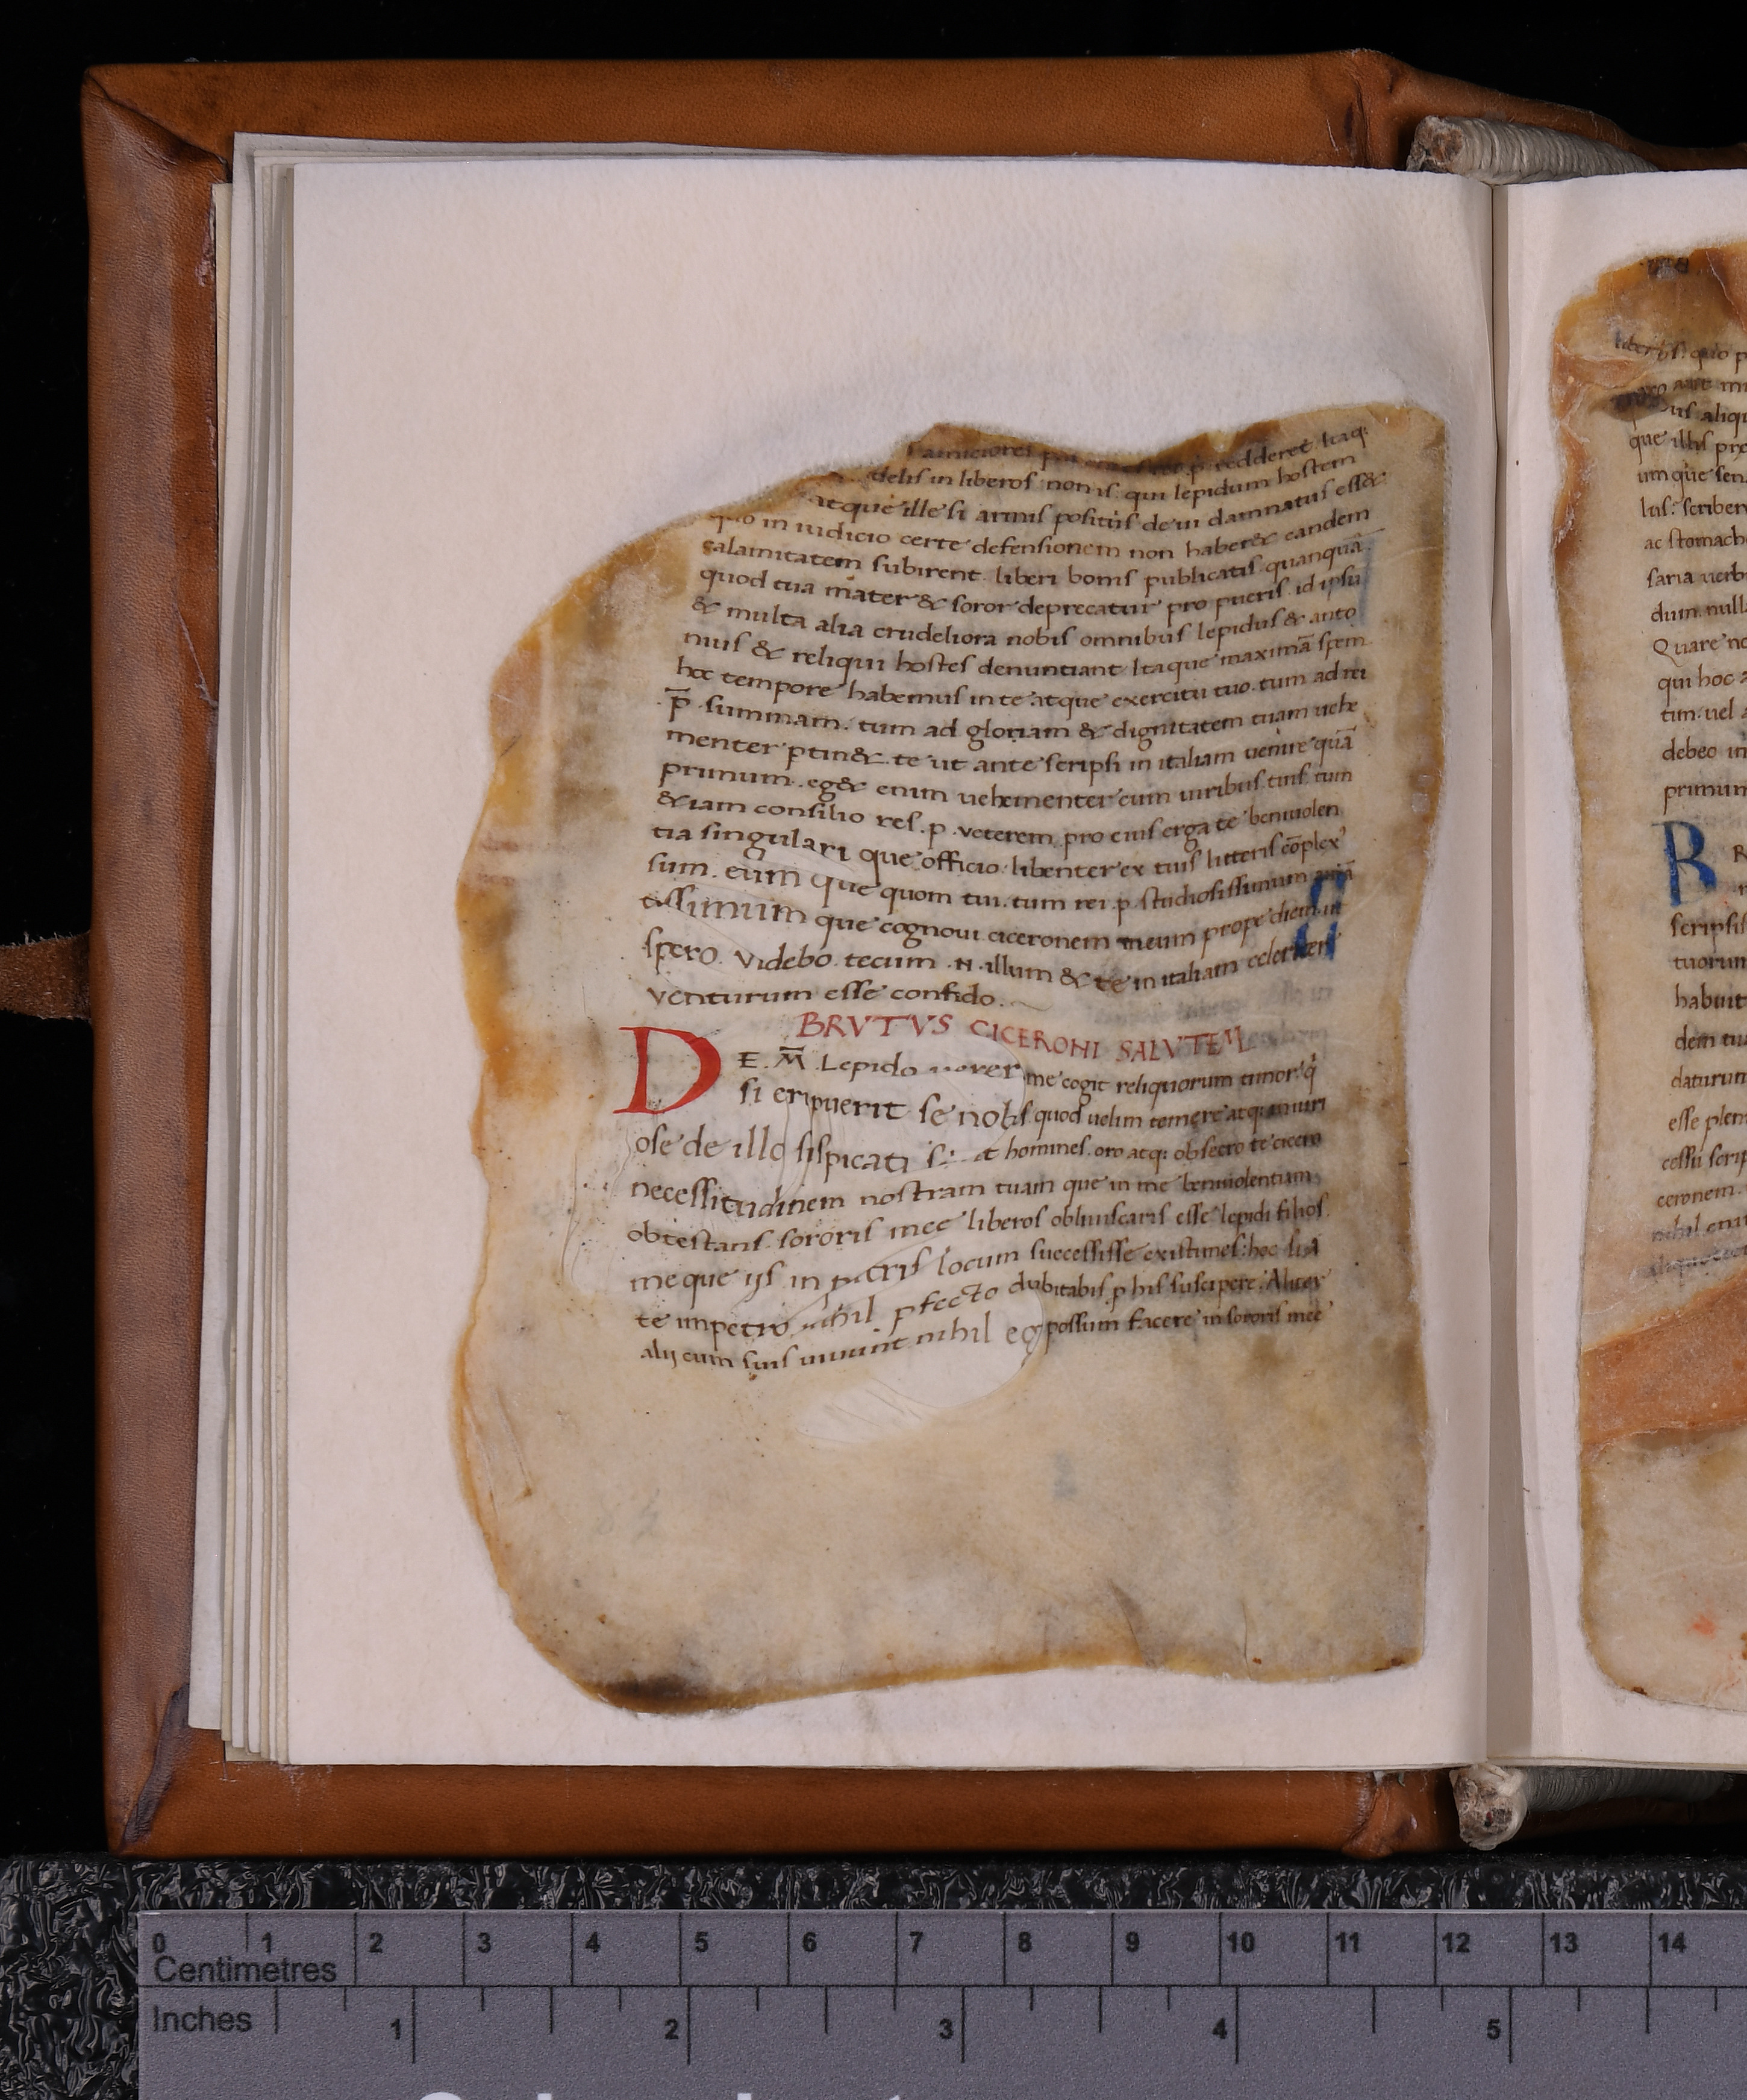 amiciores redderet Itaq:
delis in liberos non is qui lepidum hostem
atque ille si armis positis de ui damnatus ess&
quo in iudicio certe defensionem non haber& eandem
calamitatem subirent liberi bonis publicatis quanquā
quod tua mater & soror deprecatur pro pueris id ipsū
& multa alia crudeliora nobis omnibus lepidus & anto
nius & reliqui hostes denuntiant Itaque maximā spem
hoc tempore habemus in te atque exercitu tuo tum ad rei
p̄ summam tum ad gloriam & dignitatem tuam uehe
menter ptin& te ut ante scripsi in italiam uenire quā
primum eg& enim uehementer cum uiribus tuis tum
&iam consilio res p veterem pro eius erga te beniuolen
tia singulari que officio libenter ex tuis litteris cōplex
sum eum que quom tui tum rei p studiosissimum amā
tissimum que cognoui ciceronem meum prope diem ut
spero videbo tecum N illum & te in italiam celeriter
venturum esse confido
BRVTVS CICERONI SALVTEM
DE M̄ Lepido verer me cogit reliquorum timor q
si eripuerit se nobis quod uelim temere atq iniuri
ose de illo suspicati homines oro atq: obsecro te cicero
necessitudinem nostram tuam que in me beniuolentiam
obtestans sororis mee liberos obliuiscaris esse lepidi filios
meque ijs in patris locum successisse existimes: hoc si a
te impetro nihil pfecto dubitabis p his suscipere Aliter
alij cum suis uiuunt nihil eg possum facere in sororis mee
liberis: quo p
aut
us aliqu
que illis pre
umque sen
lus: scriben
ac stomach
saria verb
dum null
Quare no
qui hoc a
tim vel a
debeo in
primum
R
scripsis
tuorum
habuit
dem tu
daturum
esse plen
cessu scrip
ceronem
nihil eni
0 1 2 3 4 5 6 7 8 9 10 11 12 13 14
Centimetres
Inches
1 2 3 4 5